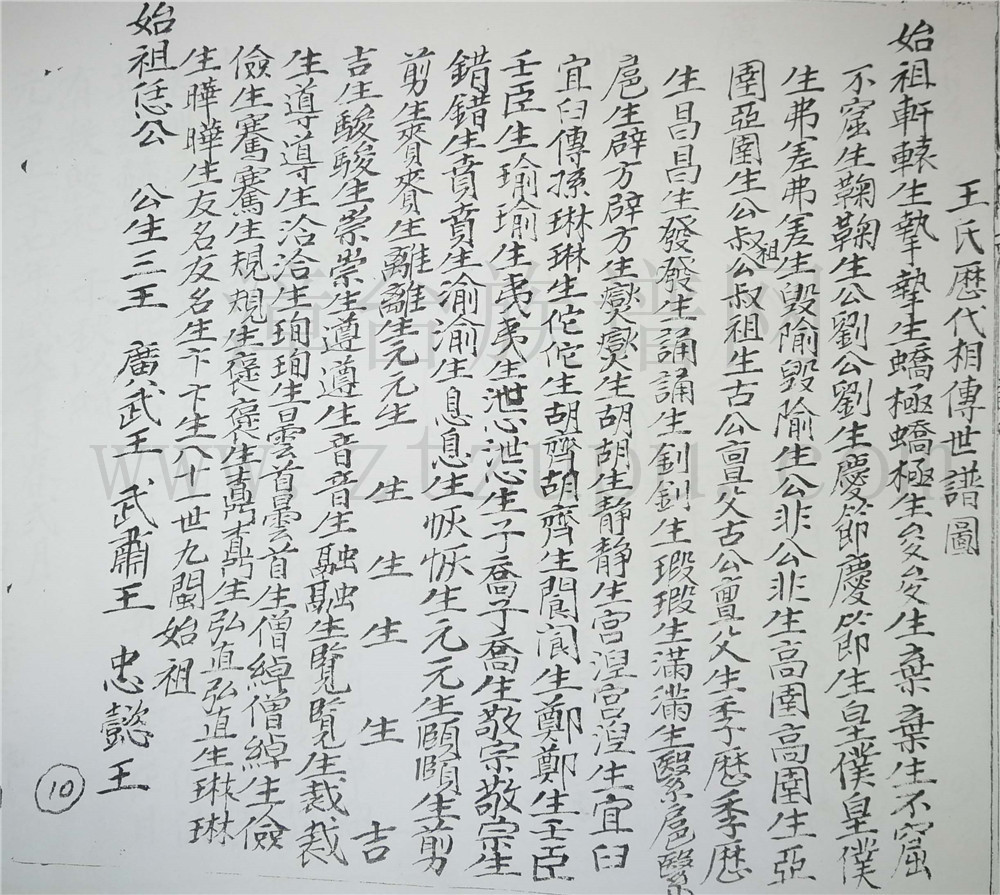 王氏歷代相傳世譜圖
始祖軒轅生摯摯生蟜極蟜極生夋夋生棄棄生不窋
不窋生鞠鞠生公劉公劉生慶節慶節生皇僕皇僕
生弗差弗差生毀隃毀隃生公非公非生高圉高圉生亞
圉亞圉生公叔祖公叔祖生古公亶父古公亶父生季歷季歷
生昌昌生發發生誦誦生釗釗生瑕瑕生滿滿生繄扈繄
扈生辟方辟方生燮燮生胡胡生靜靜生宮湼宮湼生宜臼
宜臼傳孫琳琳生佗佗生胡齊胡齊生閬閬生鄭鄭生壬臣
壬臣生瑜瑜生夷夷生泄心泄心生子喬子喬生敬宗敬宗生
錯錯生賁賁生渝渝生息息生恢恢生元元生頤頤生翦
剪生賚賚生離離生元元生 生 生 生 生 吉
吉生駿駿生崇崇生遵遵生音音生融融生覽覽生裁裁
生導導生洽洽生珣珣生曇首曇首生僧綽僧綽生儉
儉生騫騫生規規生褒褒生鼒鼒生弘直弘直生琳琳
生曄曄生友名友名生卞卞生八十一世九閩始祖
始祖恁公 公生三王 廣武王 武肅王 忠懿王
10
www.ztzupu.com